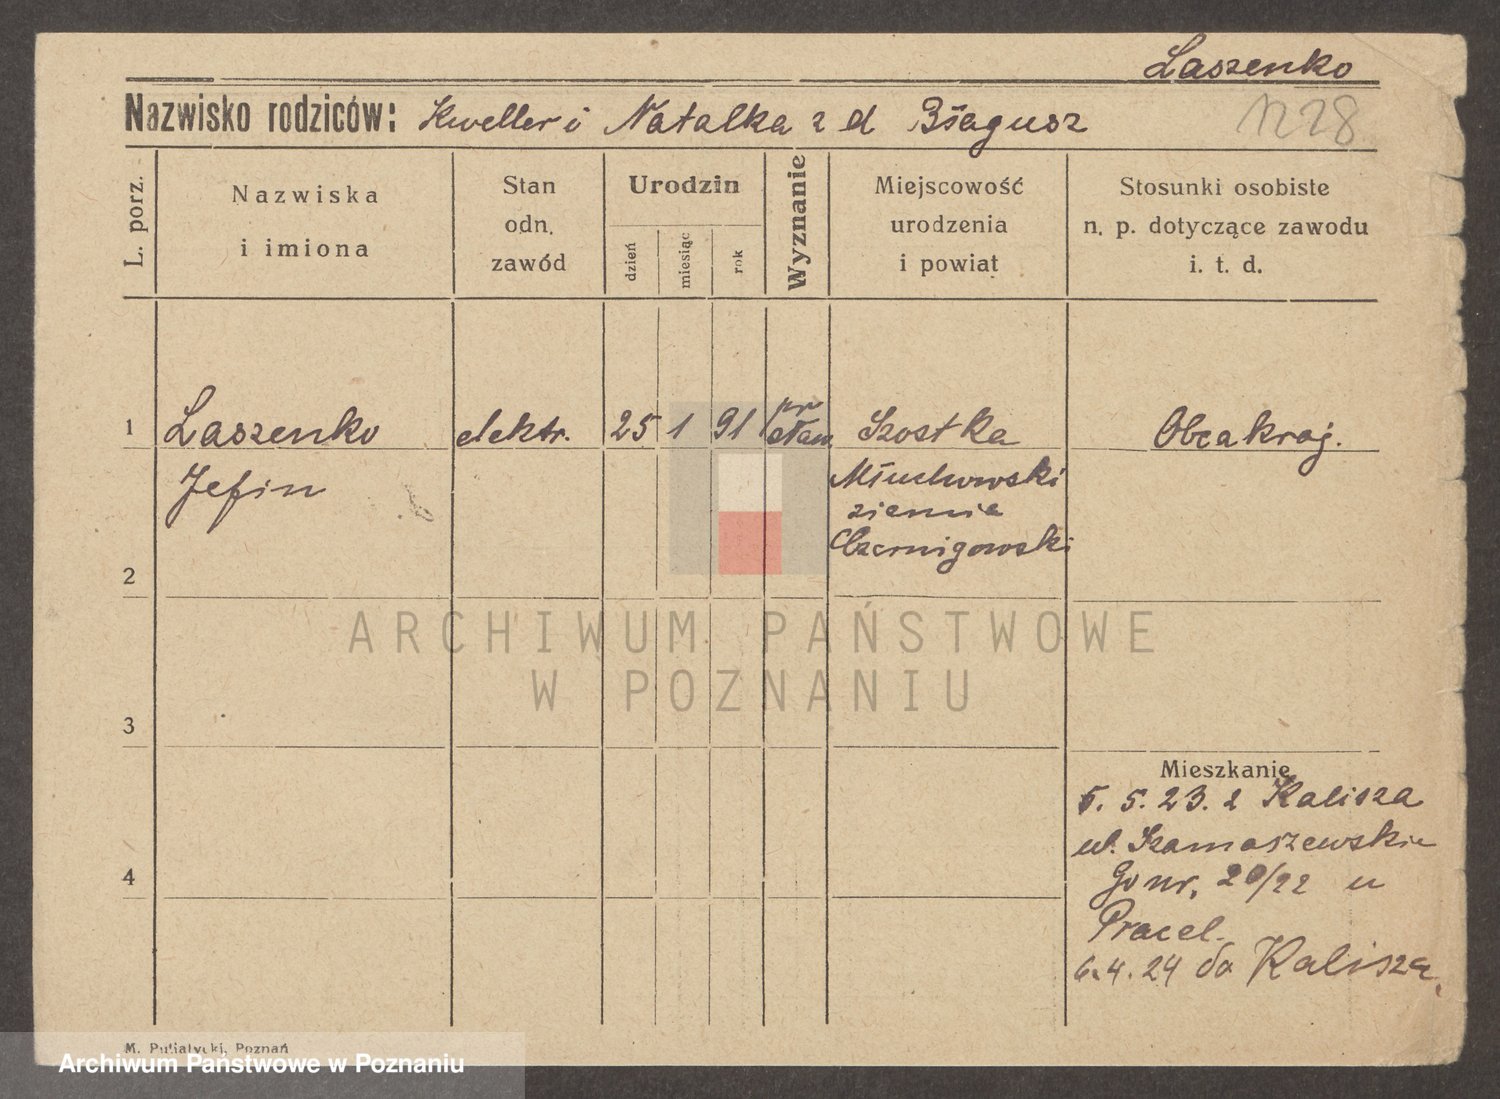 Laszenko
Nazwisko rodziców: Kweller i Natalka z d Błagusz
1228
L. porz.
Nazwiska
i imiona
Stan
odn.
zawód
Urodzin
dzień
miesiąc
rok
Wyznanie
Miejscowość
urodzenia
i powiat
Stosunki osobiste
n. p. dotyczące zawodu
i. t. d.
1 Laszenko elektr. 25 1 91 pr Szostka Obcakraj.
Jefin
ziemia
Czernigowski
2
ARCHIWUM PAŃSTWOWE
W POZNANIU
3
Mieszkanie
5. 5. 23. z Kalisza
ul. Szamaszewskie
go nr. 20/22 u
Pracel.
6.4.24 do Kalisza.
4
M. Putiatycki, Poznań
Archiwum Państwowe w Poznaniu